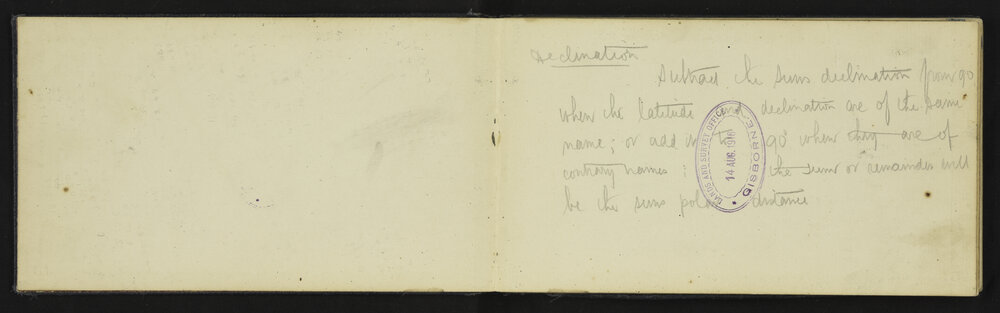 Declination
Subtract the suns declination from 90
when the latitude and declination are of the same
name; or add it to 90 when they are of
contrary names: the sum or remainder will
be the suns polar distance
LANDS AND SURVEY OFFICE
14 AUG. 1916
GISBORNE